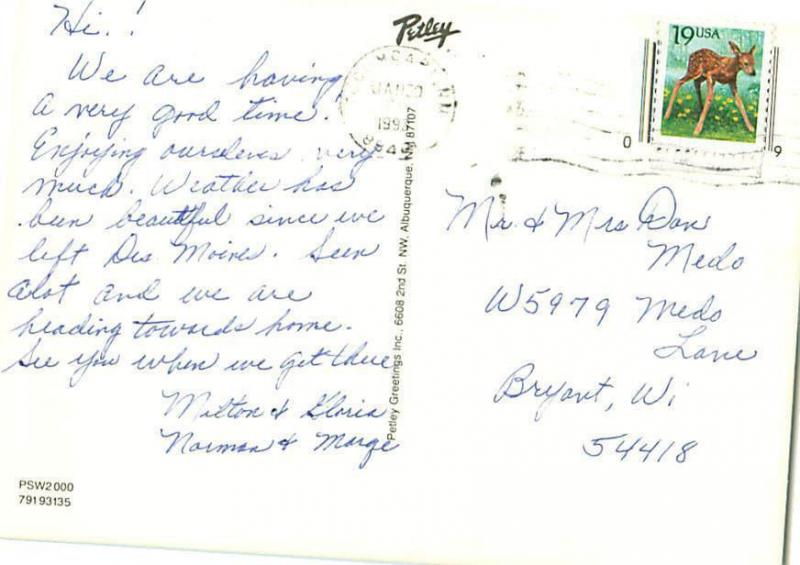 Hi.!
We are having
a very good time!
Enjoying ourselves very
much. Weather has
been beautiful since we
left Des Moines. Seen
alot and we are
heading towards home.
See you when we get there
Milton & Gloria
Norman & Marge
PSW2000
79193135
Petley
Petley Greetings Inc., 6608 2nd St. NW, Albuquerque, NM 87107
JAN 20
1993
19 USA
0
9
Mr. & Mrs Don
Medo
W5979 Medo
Lane
Bryant, Wi
54418